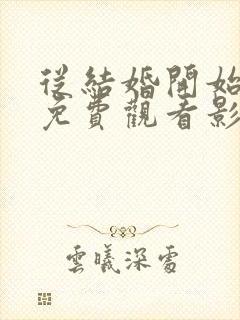 從結婚開始
免費觀看影
雲曦深處